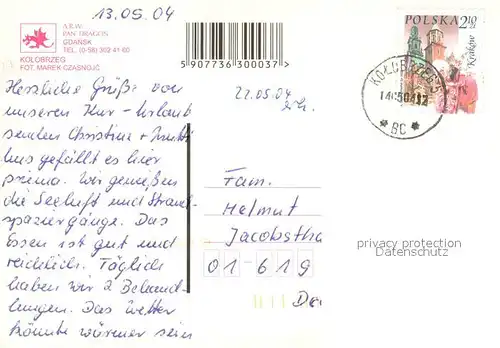 13.05.04
A.R.W.
PAN DRAGON
GDAŃSK
TEL. (0-58) 302 41 60
KOŁOBRZEG
FOT. MAREK CZASNOJĆ
5 907736 300037
POLSKA 2,10
Kraków
KOŁOBRZEG 5
BC
22.05.04
Herzliche Grüße von
unseren Kur-Urlaub
senden Christine +
uns gefällt es hier
prima. Wir genießen
die Seeluft und Strand-
spaziergänge. Das
Essen ist gut und
reichlich. Täglich
haben wir 2 Behand-
lungen. Das Wetter
könnte wärmer sein
Fam.
Helmut
Jacobstha
01-619
privacy protection
Datenschutz